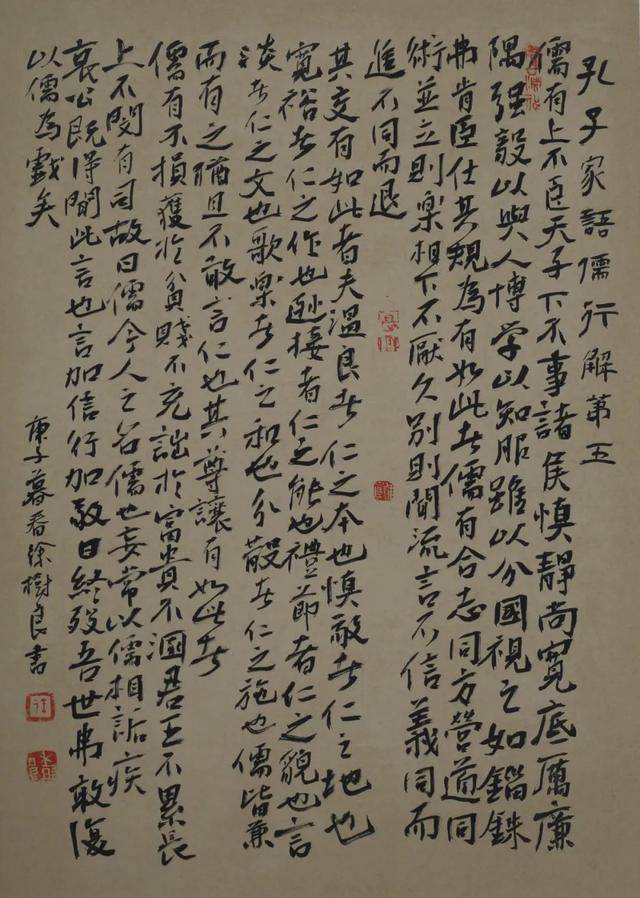 孔子家語儒行解第五
儒有上不臣天子下不事諸侯慎靜尚寬底厲廉
隅强毅以與人博學以知服雖以分國視之如錙銖
弗肯臣仕其規為有如此者儒有合志同方營道同
術並立則樂相下不厭久別則聞流言不信義同而
進不同而退
其交有如此者夫溫良者仁之本也慎敬者仁之地也
寬裕者仁之作也遜接者仁之能也禮節者仁之貌也言
談者仁之文也歌樂者仁之和也分散者仁之施也儒皆兼
而有之猶且不敢言仁也其尊讓有如此者
儒有不損獲於貧賤不充詘於富貴不溷君王不累長
上不閔有司故曰儒今人之名儒也妄常以儒相詬疾
哀公既得聞此言也言加信行加敬曰終歿吾世弗敢復
以儒為戲矣
庚子暮春徐樹良書